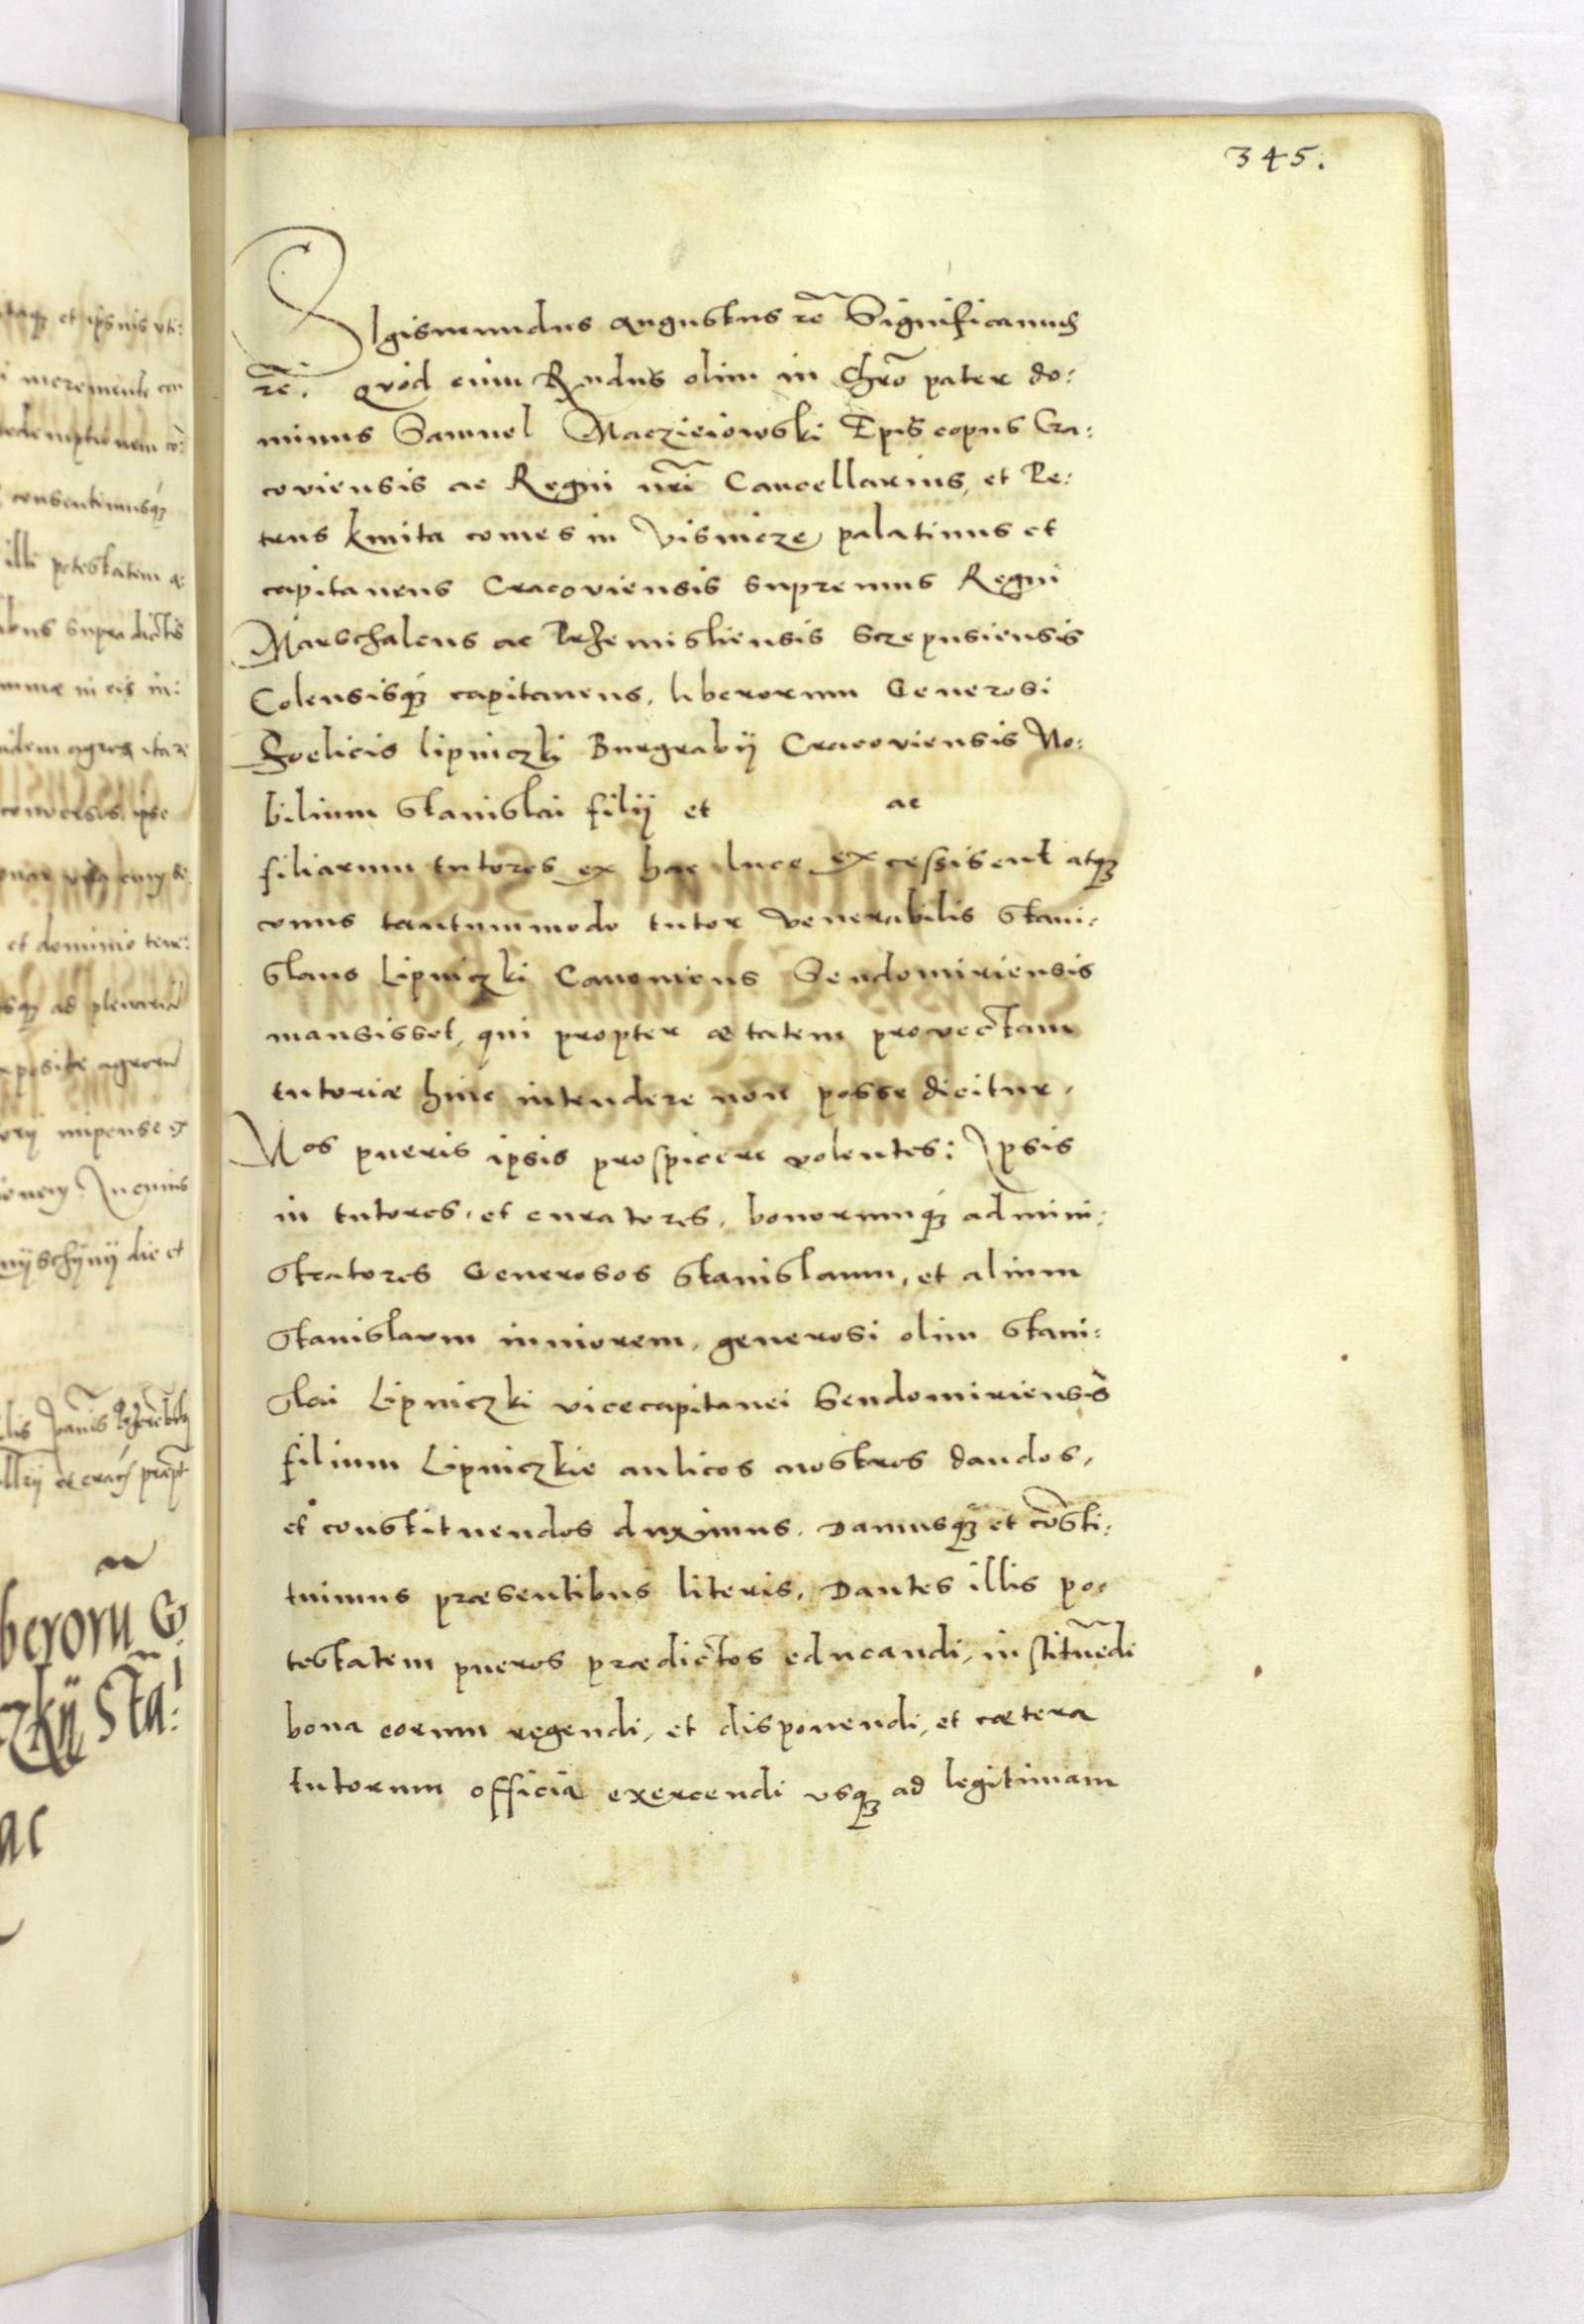 345.
Sigismundus Augustus rē Significamus
rē. Quod cum Rndus olim in Chrō pater do:
minus Samuel Maczieiowski Episcopus Cra:
coviensis ac Regni nrī Cancellarius, et Pe:
trus kmita comes in Visnicze palatinus et
capitaneus Cracoviensis supremus Regni
Marschalcus ac Przemisliensis Sczepusiensis
Colensisq́ȝ capitaneus, liberorum Generosi
Foelicis lipniczki Burgrabij Cracoviensis No:
bilium Stanislai filij et ac
filiarum tutores ex hac luce excessissent atqȝ
vnus tantummodo tutor venerabilis Stani:
slaus Lipniczki Canonicus Sendomiriensis
mansisset, qui propter ætatem provectam
tutoriæ huic intendere non posse dicitur.
Nos pueris ipsis prospicere volentes: Ipsis
in tutores, et curatores, bonorumq́ȝ admini:
stratores Generosos Stanislaum, et alium
Stanislaum iuniorem, generosi olim Stani:
slai Lipniczki vicecapitanei Sendomiriensis
filium Lipniczkie aulicos nostros dandos,
et constituendos duximus. Damusq́ȝ et cōsti:
tuimus præsentibus literis. Dantes illis po:
testatem pueros prædictos educandi, instituēdi
bona eorum regendi, et disponendi, et cætera
tutorum officia exercendi vsqȝ ad legitimam
et ipsius vti:
consentimusq́ȝ
illi potestatem
supradictis
et dominio tene:
die et
berorū G
zkij Sta:
ac